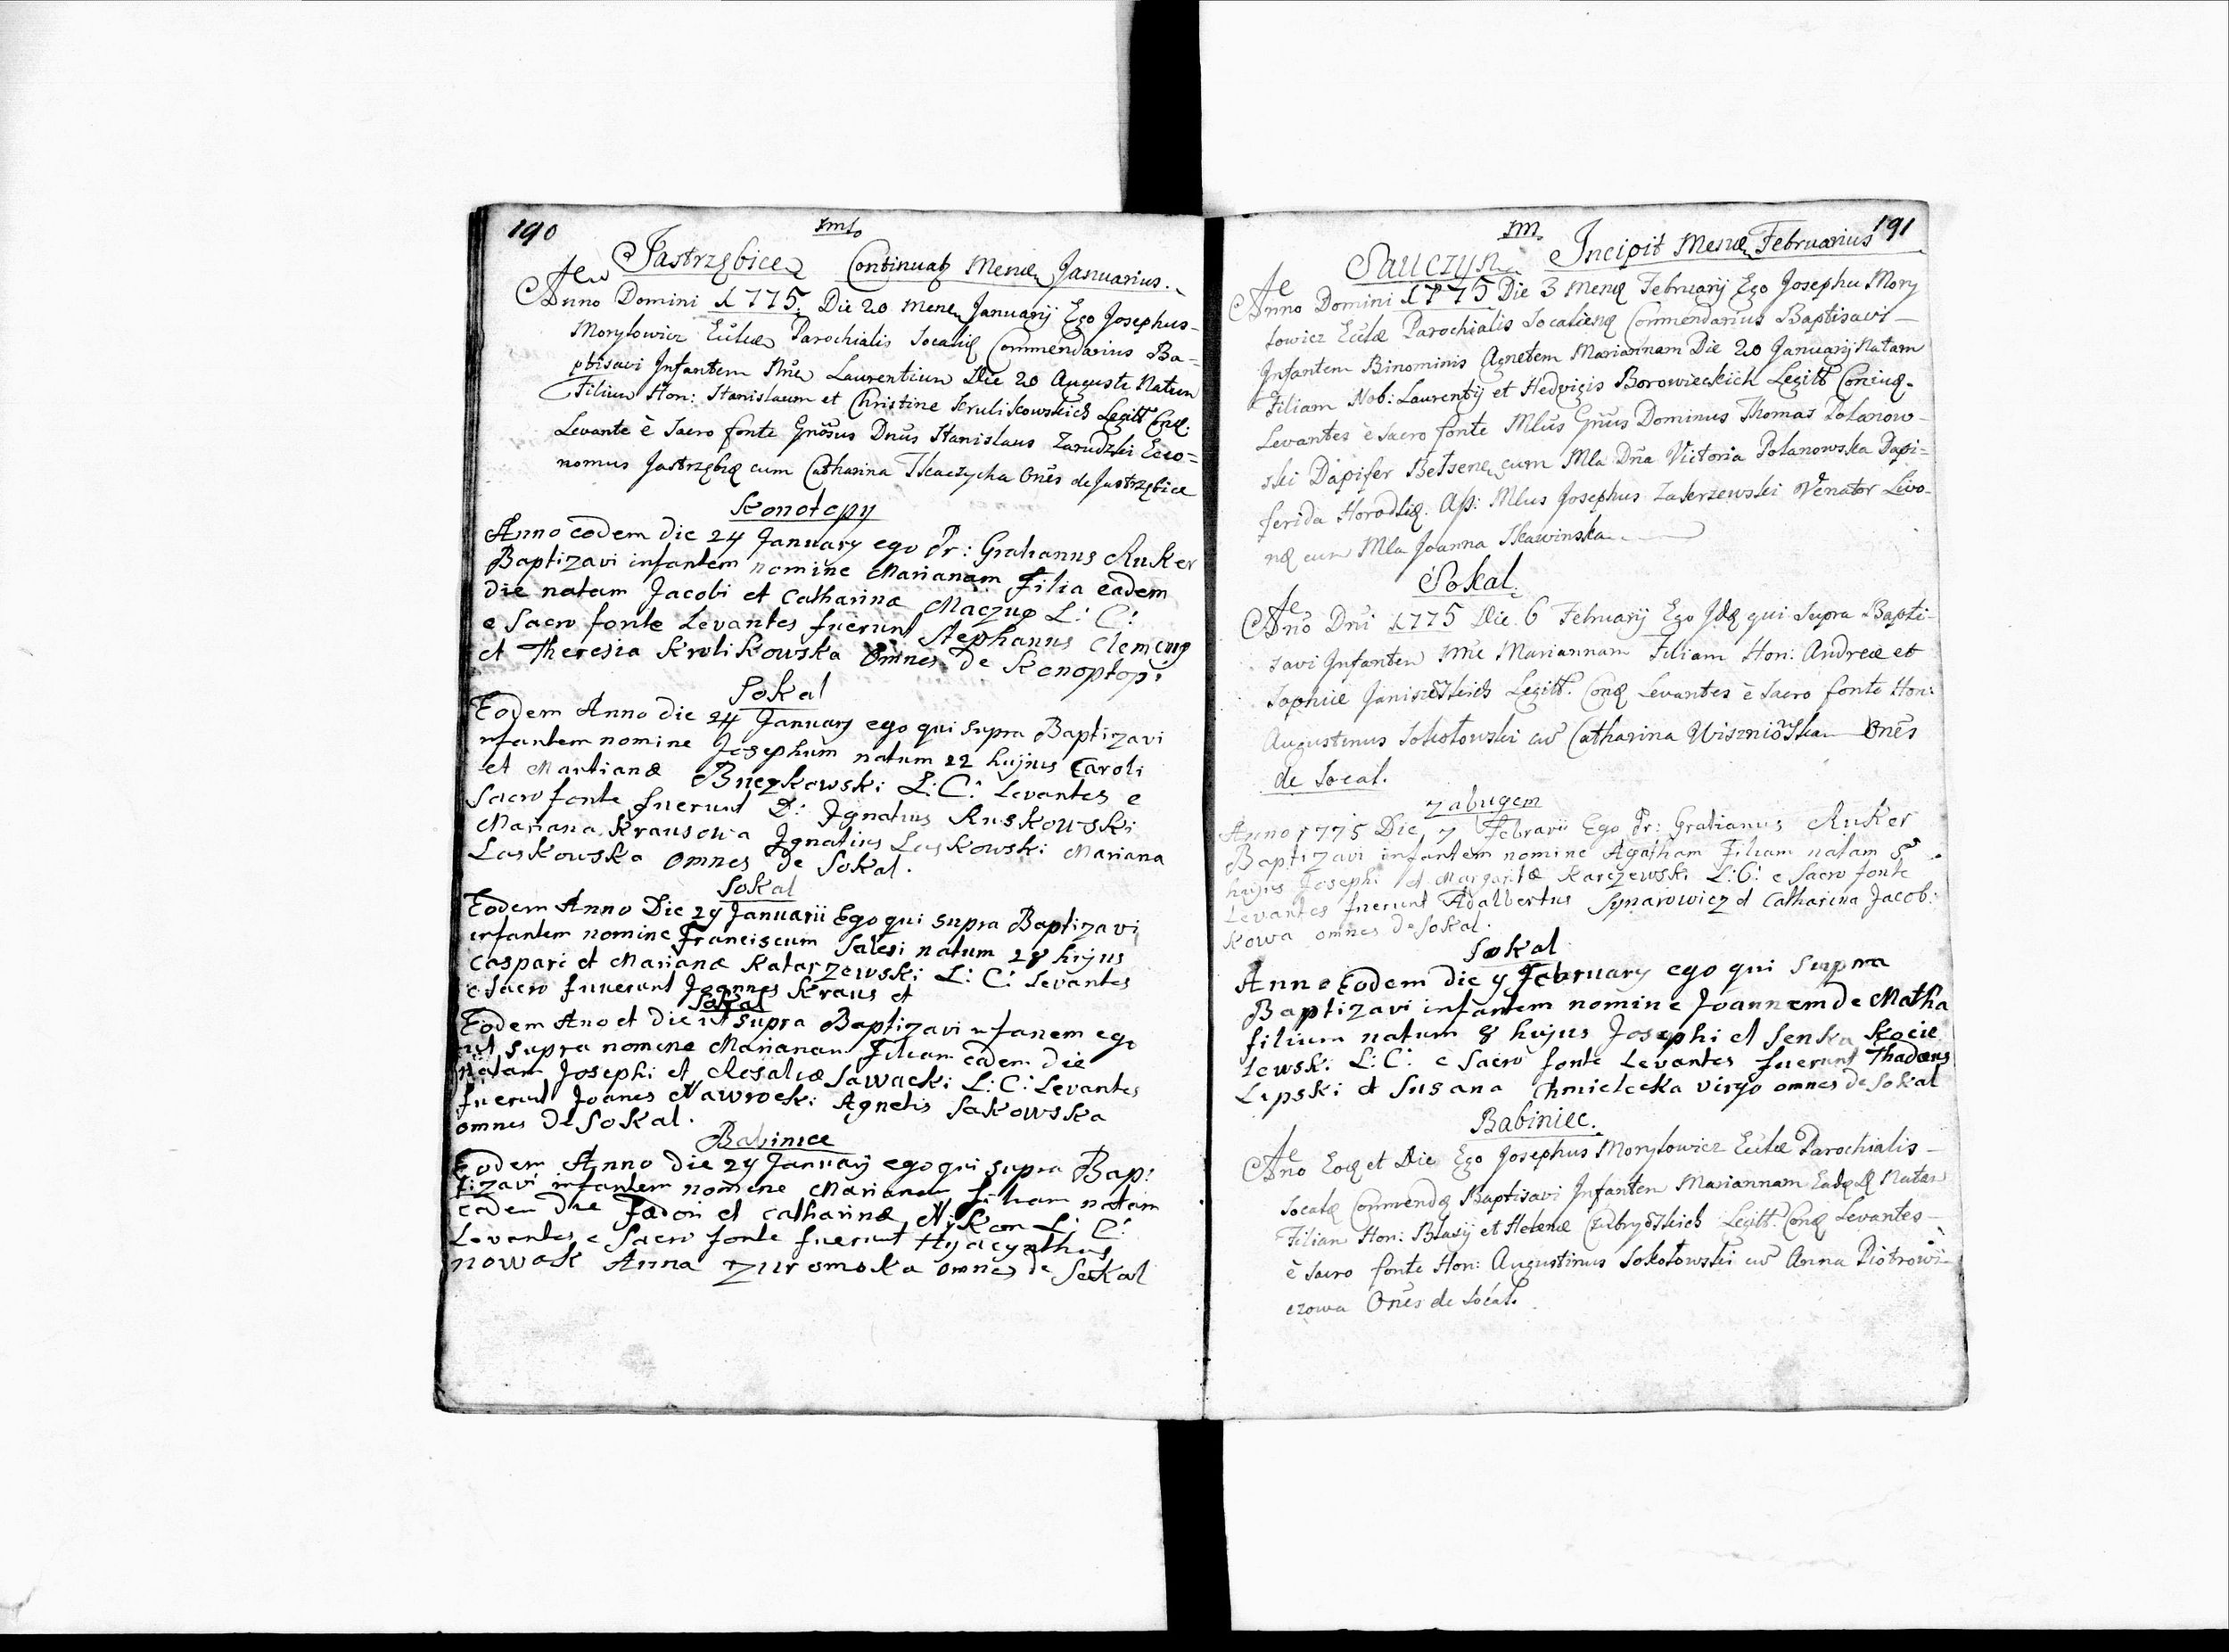 190
Jastrzębice Continuat Mense Januarius.
Anno Domini 1775. Die 20 Mens Januarij Ego Josephus
Morylowicz Ecclae Parochialis Socaliens Commendarius Ba=
ptisavi Infantem Nne Laurentium Die 20 Auguste Natum
Filium Hon: Stanislaum et Christine Krulikowskich Legitt Conj:
Levante è Sacro fonte Gnosus Dnus Stanislaus Zarudzki Eco=
nomus Jastrzębie cum Catharina Tkaczycha Ones de Jastrzębice
Konotopy
Anno eodem die 24 January ego Pr: Gratianus Ruker
Baptizavi infantem nomine Marianam Filia eadem
die natam Jacobi et Catharinæ Maczug L: C:
e Sacro fonte Levantes fuerunt Stephanus Clemens
et Theresia Krolikowska Omnes de Konoptopi
Sokal
Eodem Anno die 24 January ego qui supra Baptizavi
nfantem nomine Josephum natum 22 hujus Caroli
et Martianæ Buczkowski L: C: Levantes e
Sacro fonte fuerunt D: Ignatius Ruskowski
Mariana Krausowa Ignatius Laskowski Mariana
Laskowska omnes de Sokal.
Sokal
Eodem Anno Die 29 Januarii Ego qui supra Baptizavi
infantem nomine Franciscum Salesi natum 28 hujus
Caspari et Marianæ Katarzewski L: C: Levantes
e Sacro fuuerunt Joannes Kraus et
Sokal
Eodem Ano et die ut supra Baptizavi nfanem ego
ut supra nomine Marianam Filiam eadem die
natam Josephi et Rosaliæ Sawacki L: C: Levantes
fuerunt Joanes Nawrocki Agnetis Sakowska
omnes de Sokal.
Babinice
Eodem Anno die 29 January ego qui supra Bap:
tizavi infantem nomine Marianam filiam natam
eadem die Fædori et Catharinæ L: C:
Levantes e Sacro fonte fuerunt Hyacynthus
nowak Anna Zuromska omnes de Sokal
191
Sauczyn Incipit Mense Februarius
Anno Domini 1775 Die 3 Mens Februarij Ego Josephu Mory
lowicz Eccle Parochialis Socaliens Commendarius Baptisavi
Infantem Binominis Agnetem Mariannam Die 20 Januarij Natam
Filiam Nob: Laurentij et Hedvigis Borowieckich Legitt Coniug.
Levantes è Sacro fonte Mlus Gnus Dominus Thomas Polanow-
ski Dapifer Belsens cum Mla Dna Victoria Polanowska Dapi=
ferida Horodlie. Ass: Mlus Josephus Zakrzewski Venator Livo-
næ cum Mla Joanna Skawinska
Sokal.
Ano Dni 1775 Die 6 Februarij Ego Ide qui Supra Bapti-
savi Infanten Nne Mariannam Filiam Hon: Andreæ et
Sophiæ Legitt. Conj Levantes è Sacro fonte Hon:
Augustinus Sokołowski cum Catharina Ones
de Socal.
Zabugem
Anno 1775 Die 7 Februarii Ego Pr: Gratianus Ruker
Baptizavi infantem nomine Agatham Filiam natam 5
hujus Josephi et Margaritæ Karczewski L: C: e Sacro fonte
Levantes fuerunt Adalbertus Synarowicz et Catharina Jacob:
kowa omnes de Sokal.
Sokal
Anno Eodem die 9 February ego qui supra
Baptizavi infantem nomine Joannem de Matha
filium natum 8 hujus Josephi et Senka Kocie
lewski L: C: e Sacro fonte Levantes fuerunt Thadæus
Lipski et Susana Chmielecka virgo omnes de Sokal
Babiniec.
Ano Eod et Die Ego Josephus Morylowicz Eccle Parochialis
Socale Commend Baptisavi Infanten Mariannam Natam
Filiam Hon: Blasij et Helenæ Legitt. Conj Levantes
è Sacro fonte Hon: Augustinus Sokołowski cum Anna Piotrowi-
czowa Ones de Socal.